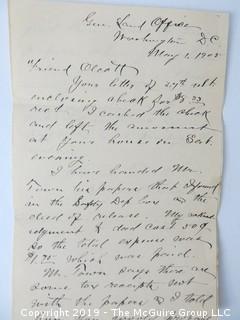 Gen. Land Office
Washington D C
May 1, 1905
"Friend Olcott
Your letter of 27th ult.
enclosing check for $8.33
recd. I cashed the check
and left the amount
at your house on Sat.
evening
I have handed Mr.
Town his papers that I found
in the Safety Dep Box & the
deed of release. My
and cost 50¢
so the total expense was
$1.75 which was paid.
Mr. Town says there are
some tax receipts not
with the papers & I told
Copyright 2019 - WorthPoint.com